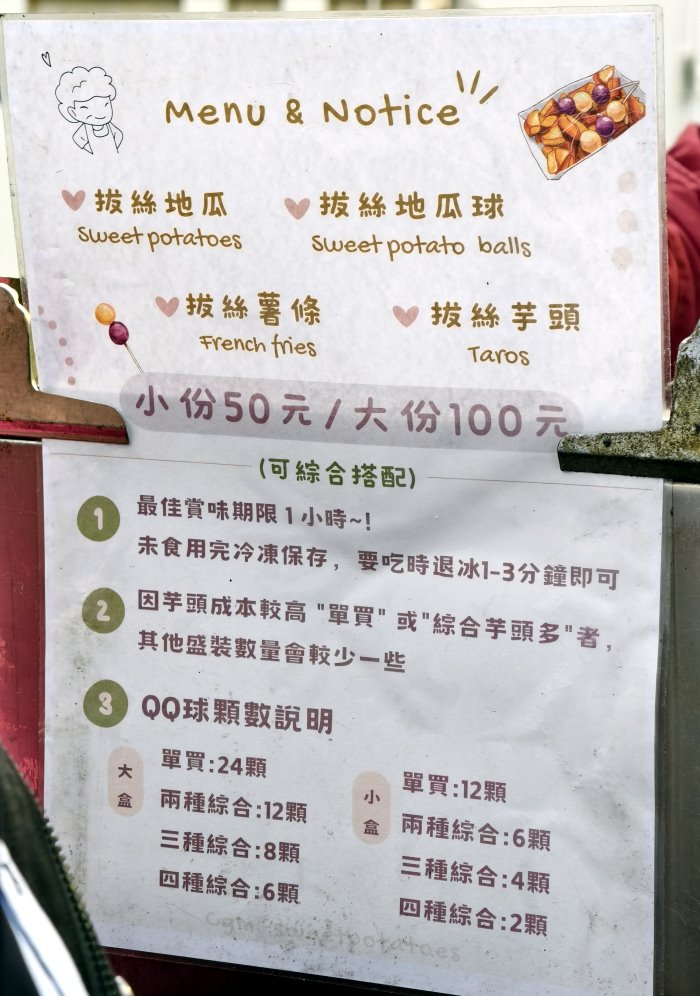 Menu & Notice
拔絲地瓜 拔絲地瓜球
Sweet potatoes Sweet potato balls
拔絲薯條 拔絲芋頭
French fries Taros
小份50元/大份100元
(可綜合搭配)
1 最佳賞味期限1小時~!
未食用完冷凍保存，要吃時退冰1-3分鐘即可
2 因芋頭成本較高"單買"或"綜合芋頭多"者，
其他盛裝數量會較少一些
3 QQ球顆數說明
大盒
單買:24顆
兩種綜合:12顆
三種綜合:8顆
四種綜合:6顆
小盒
單買:12顆
兩種綜合:6顆
三種綜合:4顆
四種綜合:2顆